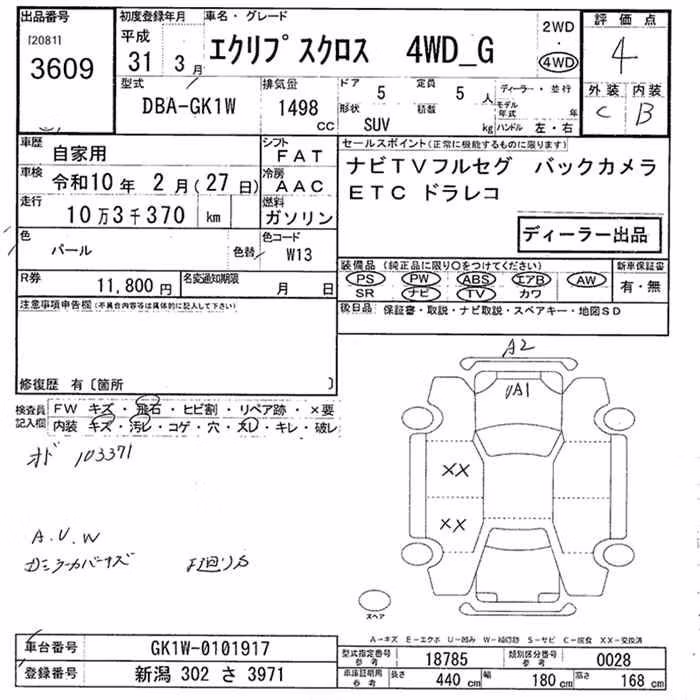 出品番号 初度登録年月 車名・グレード 2WD 評価点
[2081] 平成 エクリプスクロス 4WD_G 4WD 4
3609 31 3月 外装 内装
型式 排気量 ドア 5 定員 5人 ディーラー・並行 C B
DBA-GK1W 1498 CC 形状 SUV 積数 kg モデル年式 年 ハンドル 左・右
車歴 自家用 シフト FAT セールスポイント(正常に機能するものに限ります)
車検 令和10年 2月(27日) 冷房 AAC ナビTVフルセグ バックカメラ
走行 10万3千370 km 燃料 ガソリン ETC ドラレコ
ディーラー出品
色 パール 色替 色コード W13
装備品(純正品に限り○をつけてください) 新車保証書
R券 11,800円 名変通知期限 月 日 PS PW ABS エアB AW 有・無
SR ナビ TV カワ
注意事項申告欄(不具合内容等は具体的に記入して下さい) 後日品 保証書・取説・ナビ取説・スペアキー・地図SD
修復歴 有〔箇所 〕
検査員記入欄 FW キズ・飛石・ヒビ割・リペア跡・×要
内装 キズ・汚レ・コゲ・穴・スレ・キレ・破レ
A2
A1
103371
XX
XX
A.U.W
スペア
A-キズ E-エクボ U-凹み W-補修跡 S-サビ C-腐食 XX-交換済
車台番号 GK1W-0101917 型式指定番号 参考 18785 類別区分番号 参考 0028
登録番号 新潟 302 さ 3971 車庫証明用参考 長さ 440 cm 幅 180 cm 高さ 168 cm